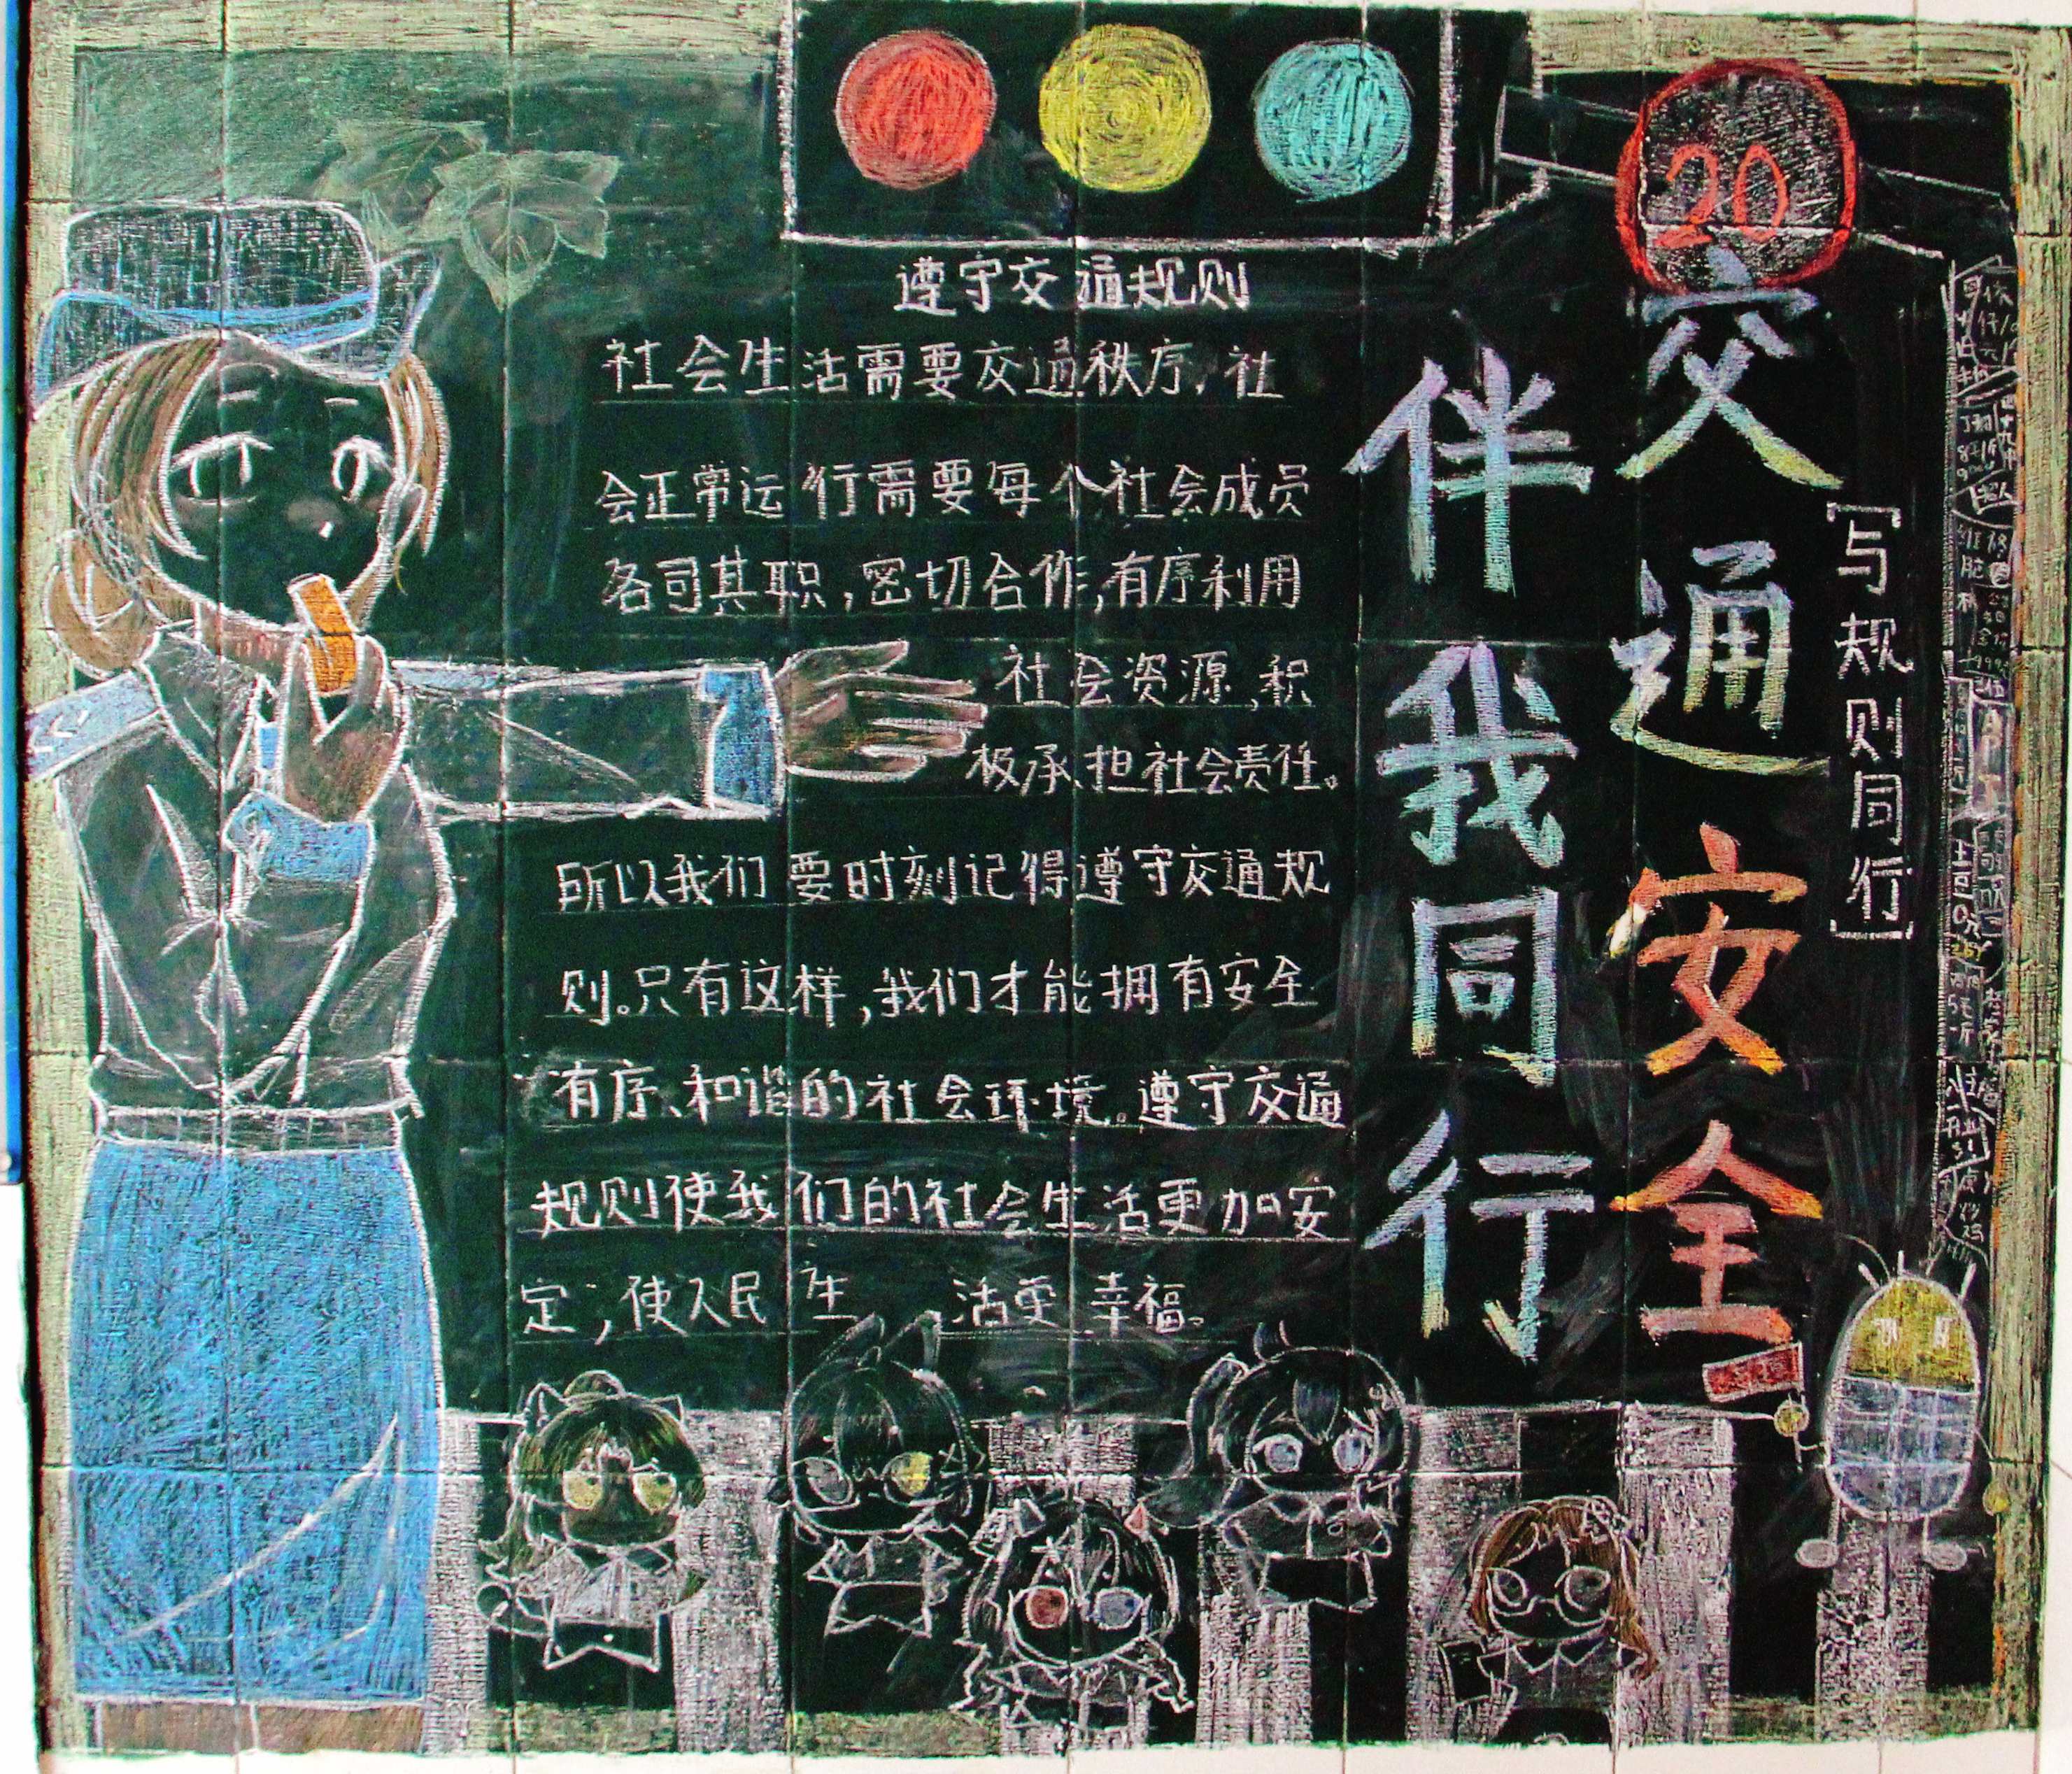 20
交通安全
伴我同行
[写规则同行]
遵守交通规则
社会生活需要交通秩序,社
会正常运行需要每个社会成员
各司其职,密切合作,有序利用
社会资源,积
极承担社会责任。
所以我们要时刻记得遵守交通规
则。只有这样,我们才能拥有安全
有序、和谐的社会环境。遵守交通
规则使我们的社会生活更加安
定;使人民生活更幸福。